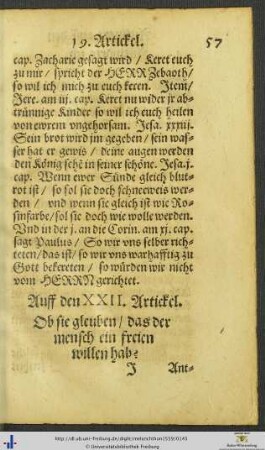 19. Artickel. 57
cap. Zacharie gesagt wird / Keret euch
zu mir / spricht der HERR Zebaoth /
so wil ich mich zu euch keren. Item /
Jere. am iij. cap. Keret nu wider jr ab-
trünnige Kinder so wil ich euch heilen
von ewrem vngehorsam. Jesa. xxxiij.
Sein brot wird jm gegeben / sein was-
ser hat er gewis / deine augen werden
den König sehē in seiner schöne. Jesa. j.
cap. Wenn ewer Sünde gleich blut-
rot ist / so sol sie doch schneeweis wer-
den / vnd wenn sie gleich ist wie Ro-
sinfarbe / sol sie doch wie wolle werden.
Vnd in der j. an die Corin. am xj. cap.
sagt Paulus / So wir vns selber rich-
teten / das ist / so wir vns warhafftig zu
Gott bekereten / so würden wir nicht
vom HERRN gerichtet.
Auff den XXII. Artickel.
Ob sie gleuben / das der
mensch ein freien
willen hab?
J Ant-
http://dl.ub.uni-freiburg.de/diglit/
© Universitätsbibliothek Freiburg
Baden-Württemberg